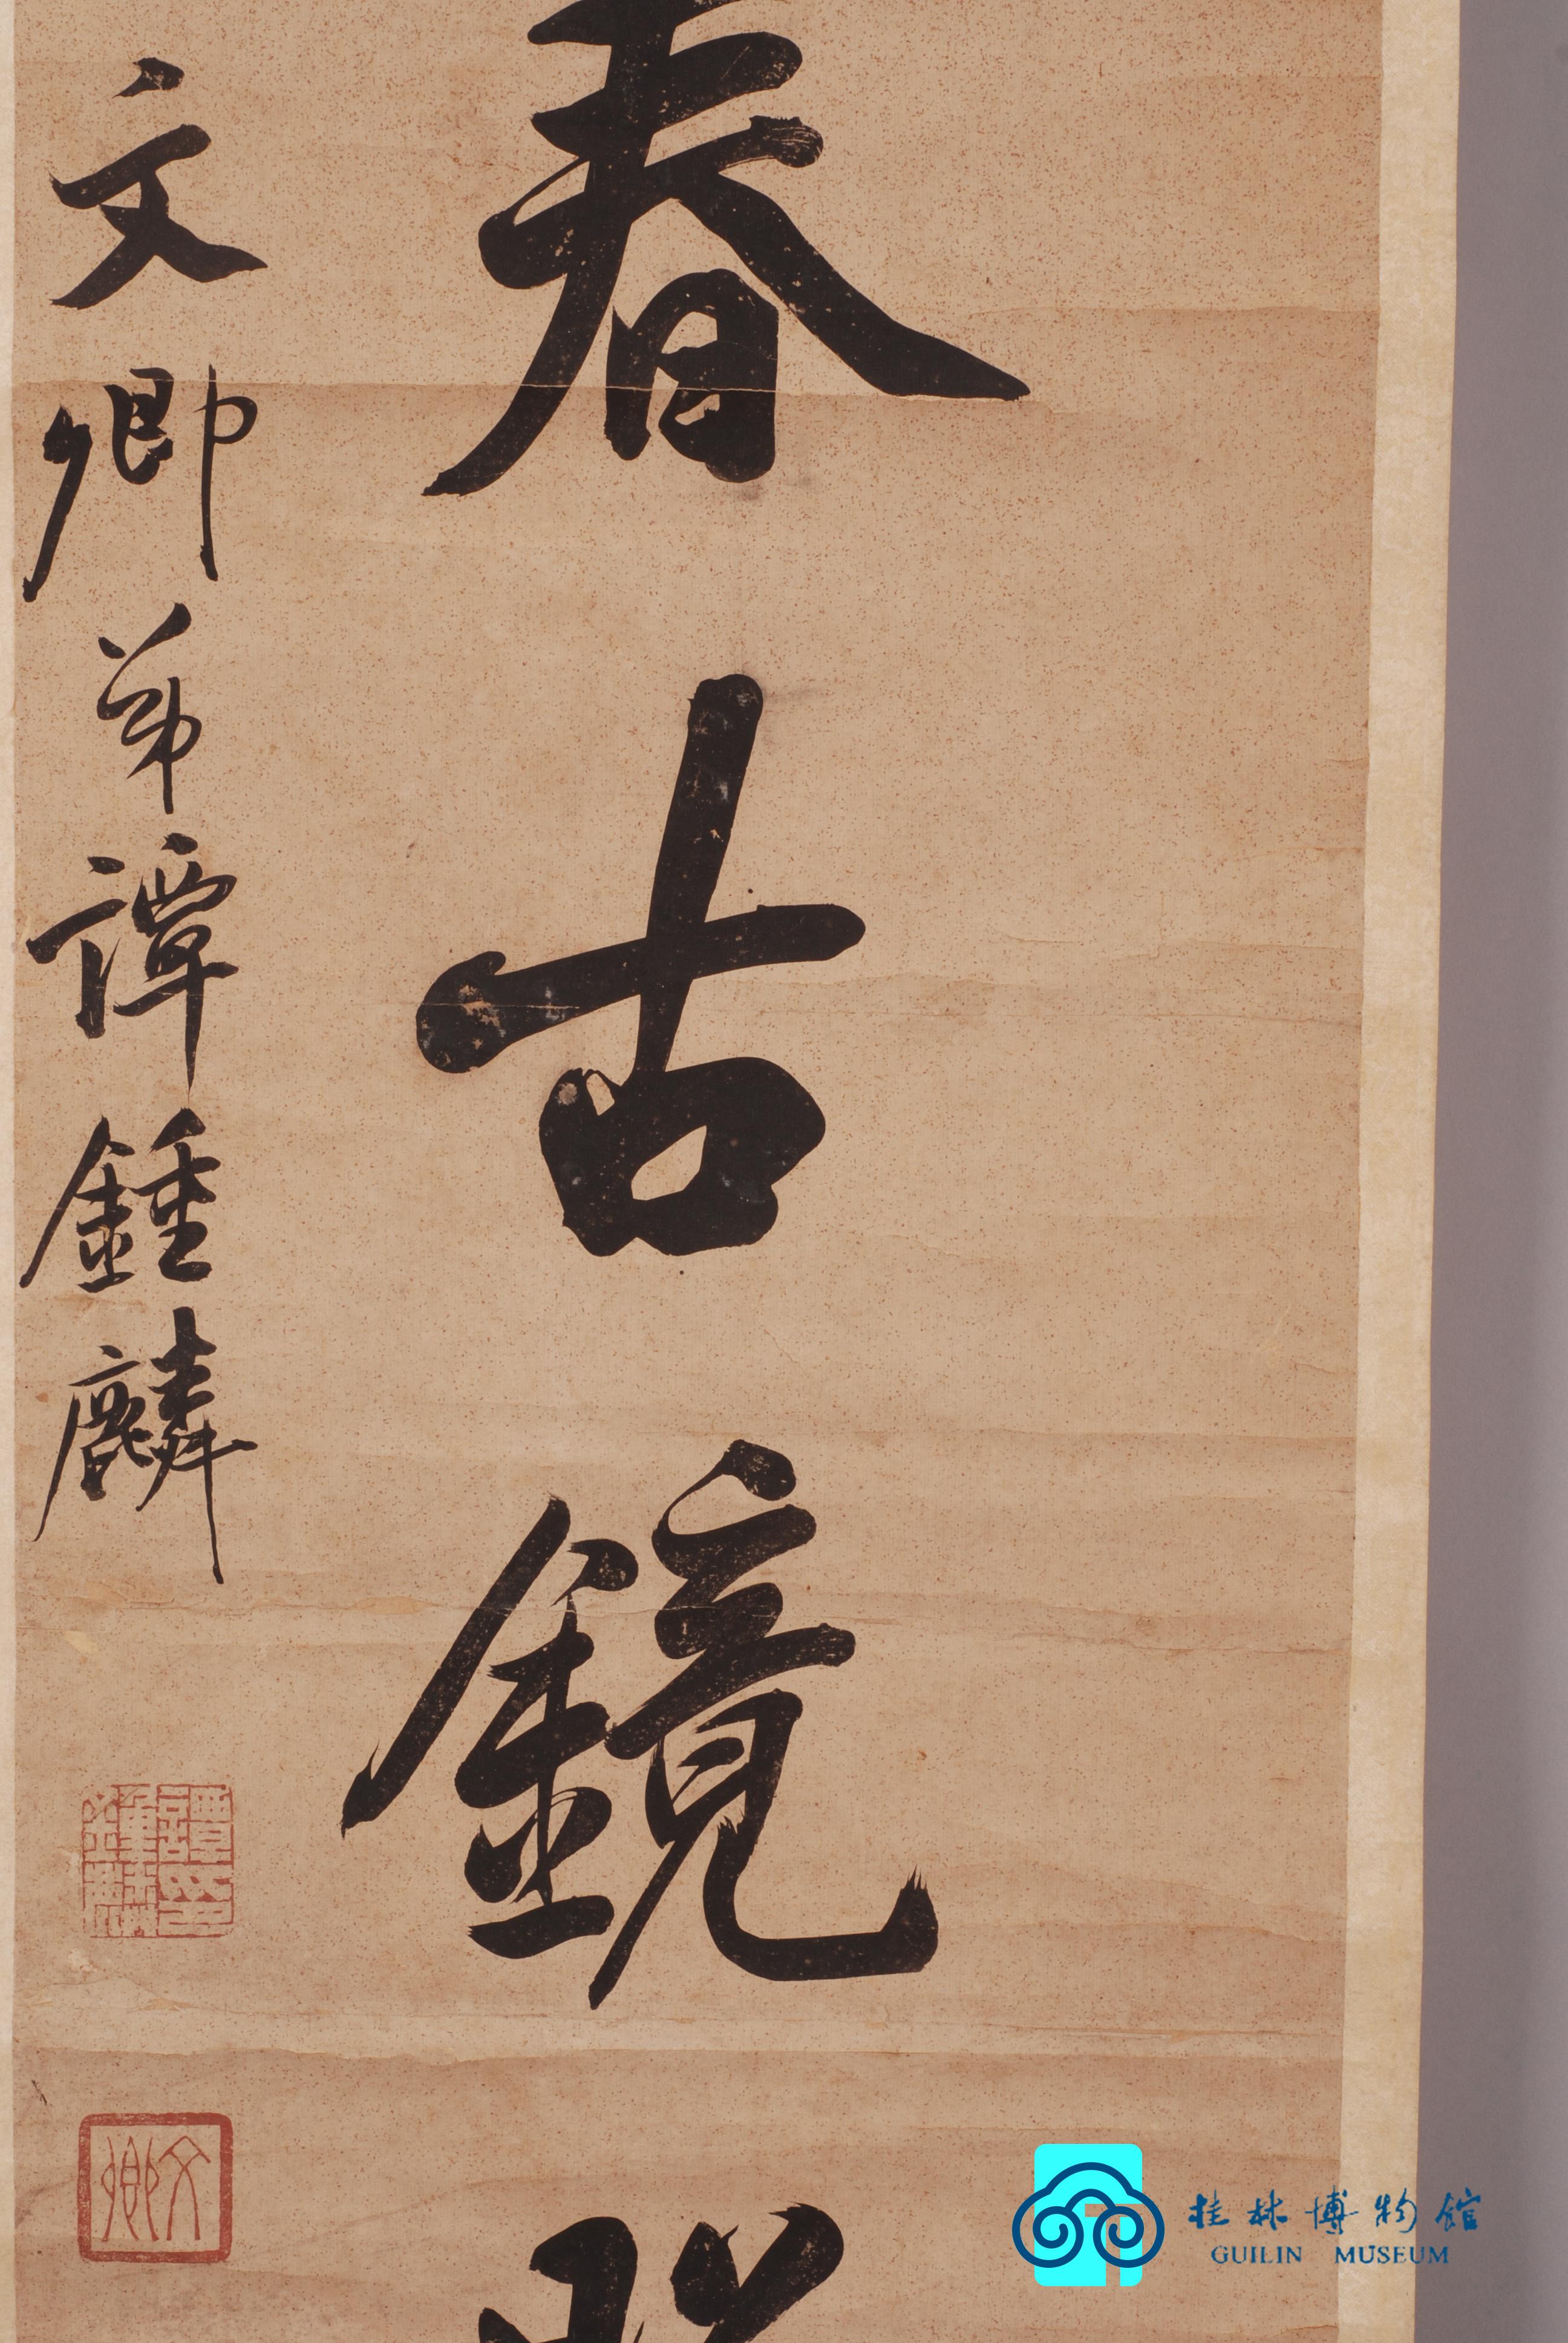 春古鏡
文卿弟譚鍾麟
譚鍾麟印
文卿
桂林博物館
GUILIN MUSEUM